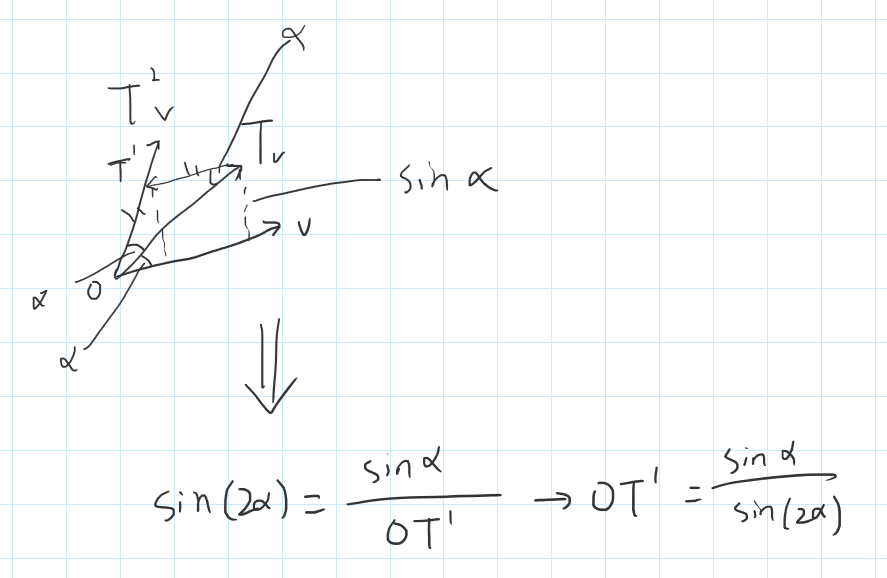 α
T²v
T'
Tv
sin α
v
α
O
α
sin(2α) = sin α / OT' → OT' = sin α / sin(2α)